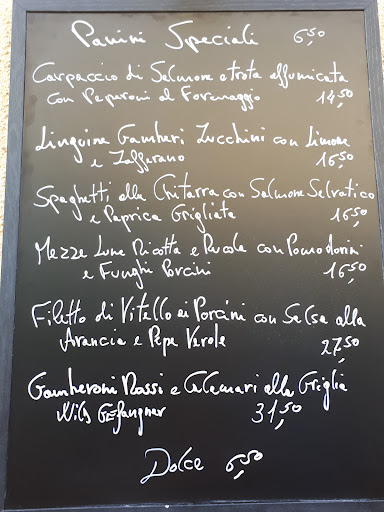 Panini Speciali 6,50
Carpaccio di Salmone e trota affumicata
con Peperoni al Formaggio 14,50
Linguine Gamberi Zucchini con Limone
e Zafferano 16,50
Spaghetti alla Chitarra con Salmone Selvatico
e Paprica Grigliata 16,50
Mezze Lune Ricotta e Rucola con Pomodorini
e Funghi Porcini 16,50
Filetto di Vitello ai Porcini con Salsa alla
Arancia e Pepe Verde 27,50
Gamberoni Rossi e Calamari alla Griglia
Wild Gefangner 31,50
Dolce 6,50